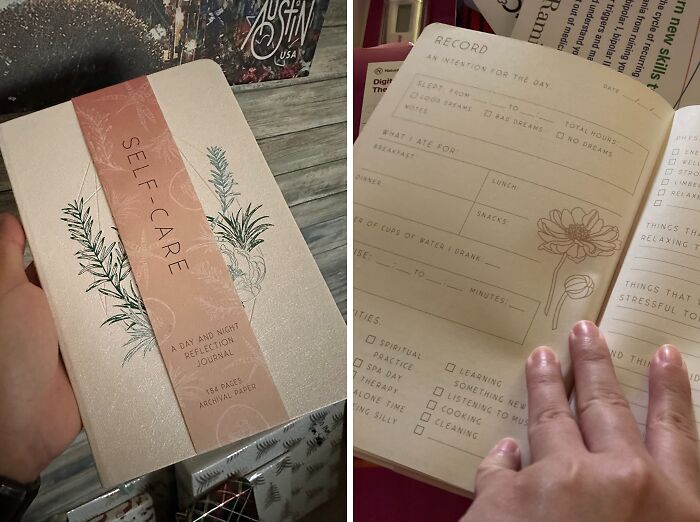 AUSTIN
USA
SELF-CARE
A DAY AND NIGHT
REFLECTION
JOURNAL
184 PAGES
ARCHIVAL PAPER
rn new skills t
the cycle of recurring
ania from ruining you
bipolar I, bipolar II
triggers and
understand you
of medic
Rami
Digit
The
RECORD
AN INTENTION FOR THE DAY:
DATE
SLEPT: FROM TO TOTAL HOURS:
GOOD DREAMS BAD DREAMS NO DREAMS
NOTES:
WHAT I ATE FOR:
BREAKFAST:
LUNCH:
DINNER:
SNACKS:
ER OF CUPS OF WATER I DRANK:
ISE: TO MINUTES:
ITIES:
SPIRITUAL
PRACTICE
SPA DAY
THERAPY
ALONE TIME
ING SILLY
LEARNING
SOMETHING NEW
LISTENING TO MUS
COOKING
CLEANING
PHYS
ENE
WEL
STRO
LIMBE
RELAXE
THINGS THA
RELAXING T
THINGS THAT
STRESSFUL TO